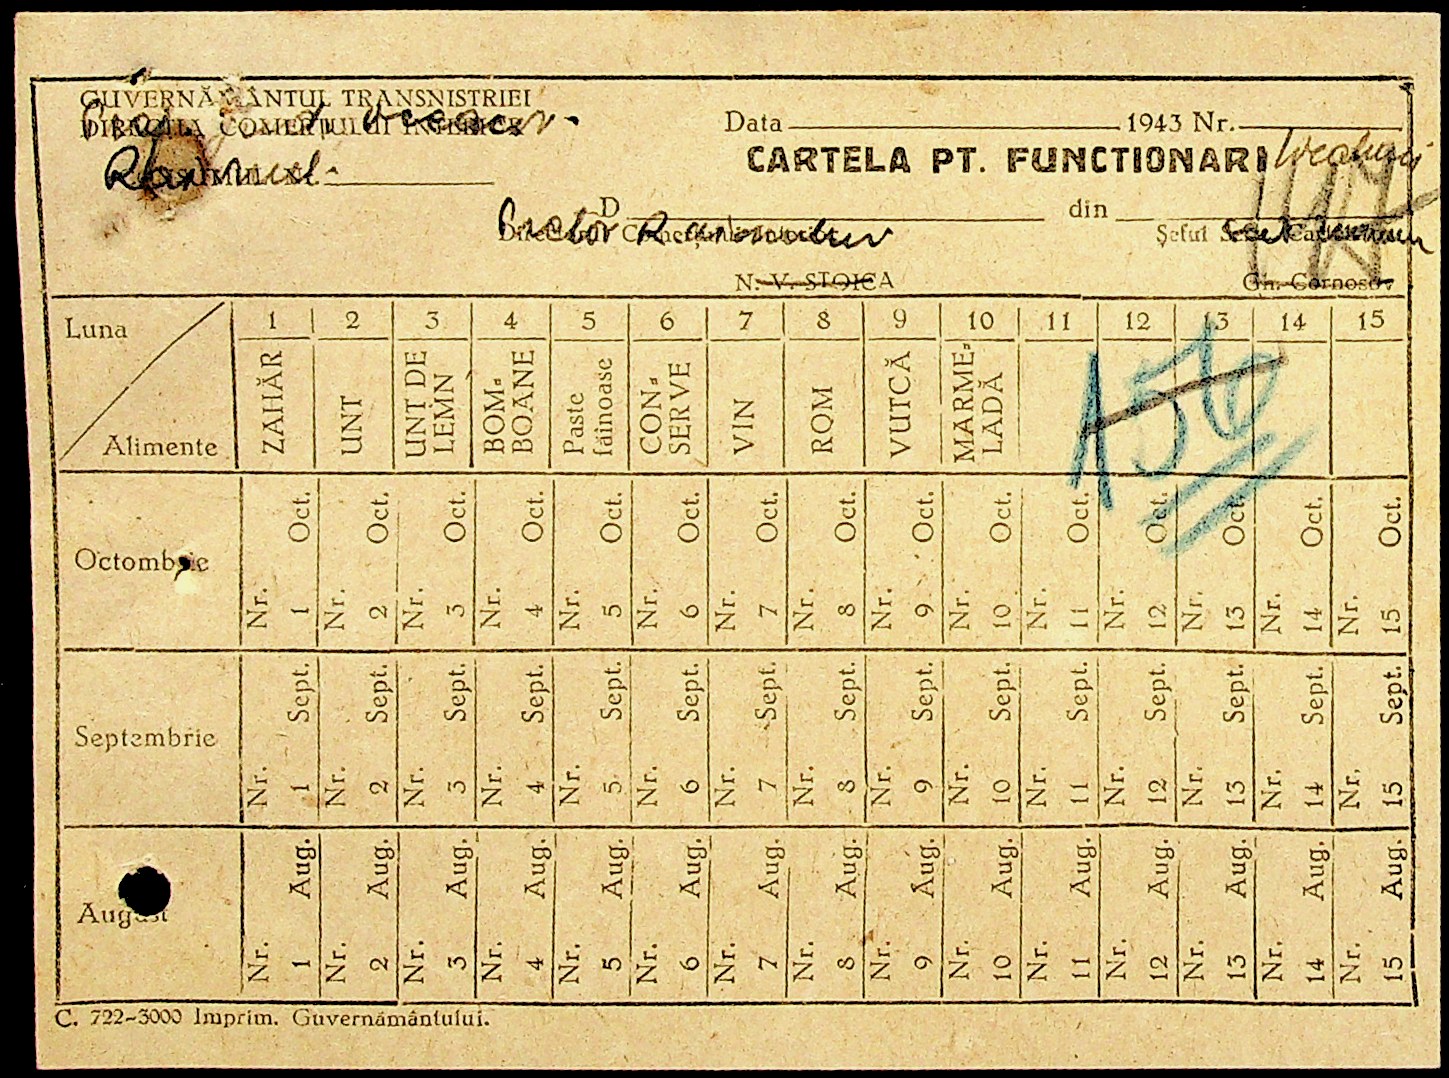 GUVERNĂMÂNTUL TRANSNISTRIEI
DIRECȚIA COMERȚULUI INTERIOR
Data 1943 Nr.
CARTELA PT. FUNCTIONARI
D din
Directorul Comerțului Interior
Șeful Serv. Cartelelor
N. V. STOICA
Gh. Cornosov
Luna 1 2 3 4 5 6 7 8 9 10 11 12 13 14 15
Alimente ZAHĂR UNT UNT DE LEMN BOM-BOANE Paste făinoase CON-SERVE VIN ROM VUTCĂ MARME-LADĂ
156
Octombrie Nr. 1 Oct. Nr. 2 Oct. Nr. 3 Oct. Nr. 4 Oct. Nr. 5 Oct. Nr. 6 Oct. Nr. 7 Oct. Nr. 8 Oct. Nr. 9 Oct. Nr. 10 Oct. Nr. 11 Oct. Nr. 12 Oct. Nr. 13 Oct. Nr. 14 Oct. Nr. 15 Oct.
Septembrie Nr. 1 Sept. Nr. 2 Sept. Nr. 3 Sept. Nr. 4 Sept. Nr. 5 Sept. Nr. 6 Sept. Nr. 7 Sept. Nr. 8 Sept. Nr. 9 Sept. Nr. 10 Sept. Nr. 11 Sept. Nr. 12 Sept. Nr. 13 Sept. Nr. 14 Sept. Nr. 15 Sept.
August Nr. 1 Aug. Nr. 2 Aug. Nr. 3 Aug. Nr. 4 Aug. Nr. 5 Aug. Nr. 6 Aug. Nr. 7 Aug. Nr. 8 Aug. Nr. 9 Aug. Nr. 10 Aug. Nr. 11 Aug. Nr. 12 Aug. Nr. 13 Aug. Nr. 14 Aug. Nr. 15 Aug.
C. 722-3000 Imprim. Guvernământului.